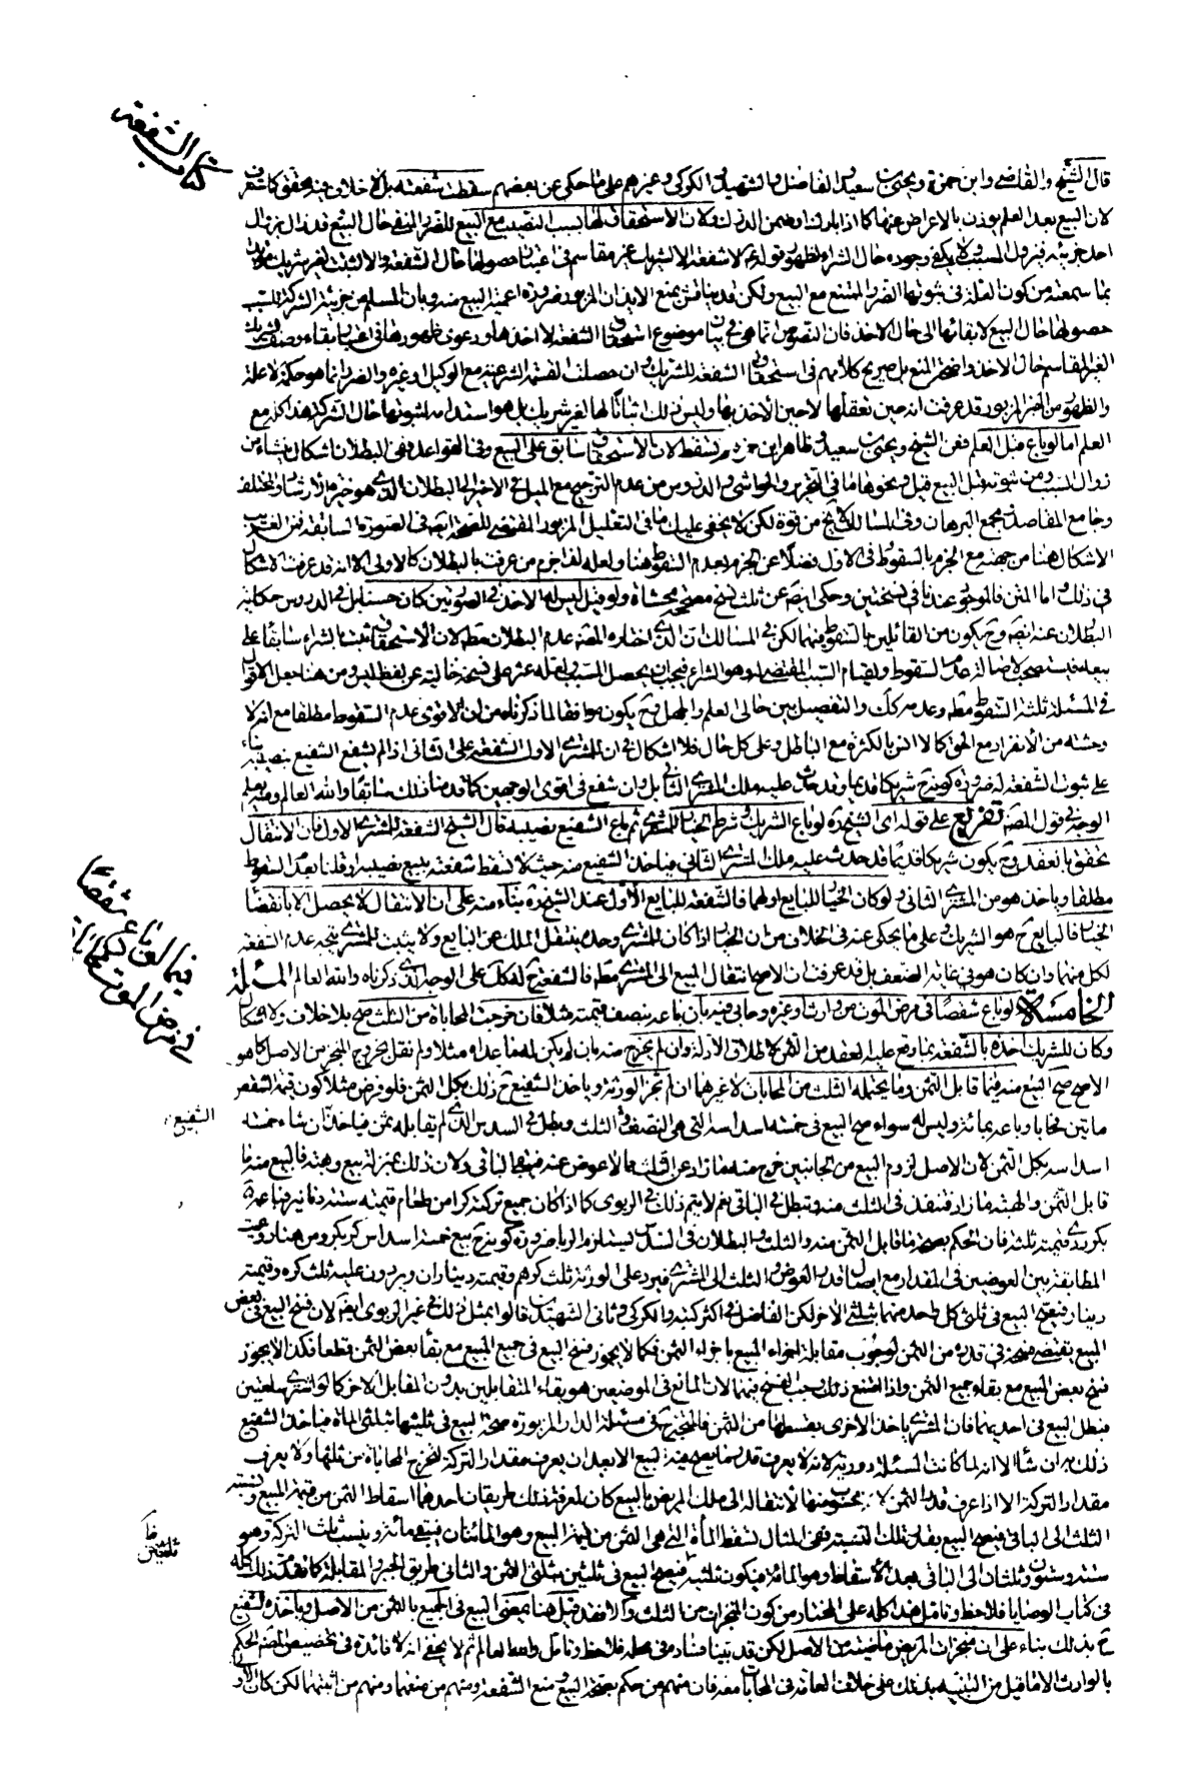 كتاب الشفعة
قال الشيخ والقاضي وابن حمزة ويحيى بن سعيد والفاضل والشهيدان والكركي وغيرهم على ما حكي عن بعضهم سقطت شفعته بل لا خلاف فيه محقق كما تعرف
لان البيع بعد العلم يؤذن بالاعراض عنها كما اذا بارك او ضمن الدرك ولان الاستحقاق لها بسبب النصيب مع البيع للضرر المنفي حال البيع قد زال بزوال
احد جزئيه فيزول المسبب ولا يكفي وجوده حال الشراء لظهور قوله لا شفعة الا لشريك غير مقاسم في اعتبار حصولها حال الشفعة والا لثبت لغير شريك
بما سمعته من كون العلة في ثبوتها الضرر الممتنع مع البيع ولكن قد يناقش بمنع الايذان المزبور ضرورة اعمية البيع منه وبان المسلم من جزئية الشركة للسبب
حصولها حال البيع لا بقائها الى حال الاخذ فان النصوص انما هي في بيان موضوع استحقاق الشفعة لا اخذها ودعوى ظهورها في اعتبار بقاء وصف الشريك
الغير المقاسم حال الاخذ واضحة المنع بل صريح كلامهم في استحقاق الشفعة للشريك وان حصلت القسمة الشرعية مع الوكيل وغيره والضرر انما هو حكمة لا علة
والظهور من الخبر المزبور قد عرفت انه حين تعقلها لا حين الاخذ بها وليس ذلك اثباتا لها لغير شريك بل هو استدامة لثبوتها حال الشركة هذا كله مع
العلم اما لو باع قبل العلم فعن الشيخ ويحيى بن سعيد وظاهر ابن حمزة لم تسقط لان الاستحقاق سابق على البيع وفي القواعد ففي البطلان اشكال ينشا من
زوال السبب ومن ثبوته قبل البيع قيل ونحوها ما في التحرير والحواشي والدروس من عدم الترجيح مع الميل في الاخير الى البطلان الذي هو خيرة الارشاد والمختلف
وجامع المقاصد ومجمع البرهان وفي المسالك لا يخ من قوة لكن لا يخفى عليك ما في التعليل المزبور المقتضي للصحة ايضا في الصورة السابقة فمن الغريب
الاشكال هنا من جهته مع الجزم بالسقوط في الاول فضلا عن الجزم بعدم السقوط هنا ولعله لذا جزم من عرفت بالبطلان كالاولى الا انه قد عرفت الاشكال
في ذلك اما المتن فالموجود عندنا في نسختين وحكي ايضا عن ثلث نسخ مصححة محشاة ولو قيل ليس له الاخذ في الصورتين كان حسنا بل في الدروس حكاية
البطلان عنه ايضا وح يكون من القائلين بالسقوط فيهما لكن في المسالك ان الذي اختاره المصنف عدم البطلان مطلقا لان الاستحقاق ثبت بالشراء سابقا على
بيعه فيستصحب لاصالة عدم السقوط ولقيام السبب المقتضي له وهو الشراء فيجب ان يحصل المسبب ولعله عثر على نسخة خالية عن لفظ ليس ومن هنا جعل الاقوال
في المسئلة ثلثة السقوط مطلقا وعدمه كك والتفصيل بين حالي العلم والجهل وح يكون موافقا لما ذكرناه من ان الاقوى عدم السقوط مطلقا مع انه لا
وحشة من الانفراد مع الحق كما لا انس بالكثرة مع الباطل وعلى كل حال فلا اشكال في ان للمشتري الاول الشفعة على الثاني اذا لم يشفع الشفيع بنصيبه بناء
على ثبوت الشفعة له ضرورة كونه ح شريكا قديما وقد حدث عليه ملك المشتري الثاني بل وان شفع في اقوى الوجهين كما قدمنا ذلك سابقا والله العالم ومنه يعلم
الوجه في قول المصنف تفريع على قوله اى الشيخ ره لو باع الشريك وشرط الخيار للمشتري ثم باع الشفيع نصيبه قال الشيخ الشفعة للمشتري الاول فان الانتقال
تحقق بالعقد وح يكون شريكا قديما قد حدث عليه ملك المشتري الثاني فياخذ الشفيع منه حيث لا تسقط شفعته ببيع نصيبه او قلنا بعدم السقوط
مطلقا وياخذ هو من المشتري الثاني ولو كان الخيار للبايع او لهما فالشفعة للبايع الاول عند الشيخ ره بناء منه على ان الانتقال لا يحصل الا بانقضاء
الخيار فالبايع ح هو الشريك وعلى ما يحكى عنه في الخلاف من ان الخيار اذا كان للمشتري وحده ينتقل الملك عن البايع ولا يثبت للمشتري يتجه عدم الشفعة
لكل منهما وان كان هو في غاية الضعف بل قد عرفت ان الاصح انتقال المبيع الى المشتري مطلقا فالشفعة ح لذلك على الوجه الذي ذكرناه والله العالم المسئلة
الخامسة لو باع شقصا في مرض الموت من وارث او غيره وحابى فيه بان باعه بنصف قيمته مثلا فان خرجت المحاباة من الثلث صح بلا خلاف ولا اشكال
فيما لو باع شقصا
في مرض الموت محاباة
وكان للشريك اخذه بالشفعة بما وقع عليه العقد من الثمن لاطلاق الادلة وان لم يخرج منه بان لم يكن له ما عداه مثلا ولم نقل بخروج المنجز من الاصل كما هو
الاصح صح البيع منه فيما قابل الثمن وما يحتمله الثلث من المحاباة لا غيرهما ان لم تجز الورثة وياخذ الشفيع ح ذلك بكل الثمن فلو فرض مثلا كون قيمة الشقص
الشفيع
مائتين فحابا وباعه بمائة وليس له سواه صح البيع في خمسة اسداسه التي هي النصف والثلث وبطل في السدس الذي لم يقابله ثمن فياخذ ان شاء خمسة
اسداسه بكل الثمن لان الاصل لزوم البيع من الجانبين خرج منه ما زاد عن الثلث مما لا عوض عنه فيبقى الباقي ولان ذلك بمنزلة بيع وهبة فالبيع منه ما
قابل الثمن والهبة ما زاد فتنفذ في الثلث منه وتبطل في الباقي نعم لا يتم ذلك في الربوي كما اذا كان جميع تركته كرا من طعام قيمته ستة دنانير فباعه
بكر ردي قيمته ثلثة فان الحكم بصحة ما قابل الثمن منه والثلث والبطلان في السدس يستلزم الربا ضرورة كونه ح بيع خمسة اسداس كر بكر ومن هنا روعيت
المطابقة بين العوضين في المقدار مع ايصال قدر العوض والثلث الى المشتري فيرد على الورثة ثلث كرهم وقيمته ديناران ويردون عليه ثلث كره وقيمته
دينار فيصح البيع في ثلثي كل واحد منهما بثلثي الاخر لكن الفاضل في اكثر كتبه والكركي وثاني الشهيدين قالوا بمثل ذلك في غير الربوي ايضا لان فسخ البيع في بعض
المبيع يقتضي فسخه في قدره من الثمن لوجوب مقابلة اجزاء المبيع باجزاء الثمن فكما لا يجوز فسخ البيع في جميع المبيع مع بقاء بعض الثمن قطعا فكذا لا يجوز
فسخ بعض المبيع مع بقاء جميع الثمن واذا امتنع ذلك وجب الفسخ فيهما لان المانع في الموضعين هو بقاء المتقابلين بدون المقابل الاخر كما لو اشترى سلعتين
فبطل البيع في احديهما فان المشتري ياخذ الاخرى بقسطها من الثمن فالمتجه ح في مسئلة الدار المزبورة صحة البيع في ثلثيها بثلثي المائة فياخذ الشفيع
ذلك به ان شاء الا انه لما كانت المسئلة دورية لانه لا يعرف قدر ما يصح فيه البيع الا بعد ان يعرف مقدار التركة لتخرج المحاباة من ثلثها ولا يعرف
مقدار التركة الا اذا عرف قدر الثمن لانه محسوب منها لانتقاله الى ملك المريض بالبيع كان لمعرفة ذلك طريقان احدهما اسقاط الثمن من قيمة المبيع ونسبة
ثلثين
الثلث الى الباقي فيصح البيع بقدر تلك النسبة ففي المثال تسقط المائة التي هي الثمن من قيمة المبيع وهو المائتان فيبقى مائة وينسب ثلث التركة وهو
ستة وستون وثلثان الى الباقي بعد الاسقاط وهو المائة فيكون ثلثيه فيصح البيع في ثلثين بثلثي الثمن والثاني طريق الجبر والمقابلة كما تقدم ذلك كله
في كتاب الوصايا فلاحظ وتامل هذا كله على المختار من كون المنجزات من الثلث والا فقد قيل هنا يمضي البيع في الجميع بالثمن من الاصل وياخذه الشفيع
ح بذلك بناء على ان منجزات المريض ماضية من الاصل لكن قد بينا فساده في محله فلاحظ وتامل والله العالم ثم لا يخفى انه لا فائدة في تخصيص المصنف الحكم
بالوارث الا ما قيل من التنبيه بذلك على خلاف العامة في المحاباة معه فان منهم من حكم بصحة البيع ومنع الشفعة ومنهم من منعهما ومنهم من اثبتهما لكن كان الاولى